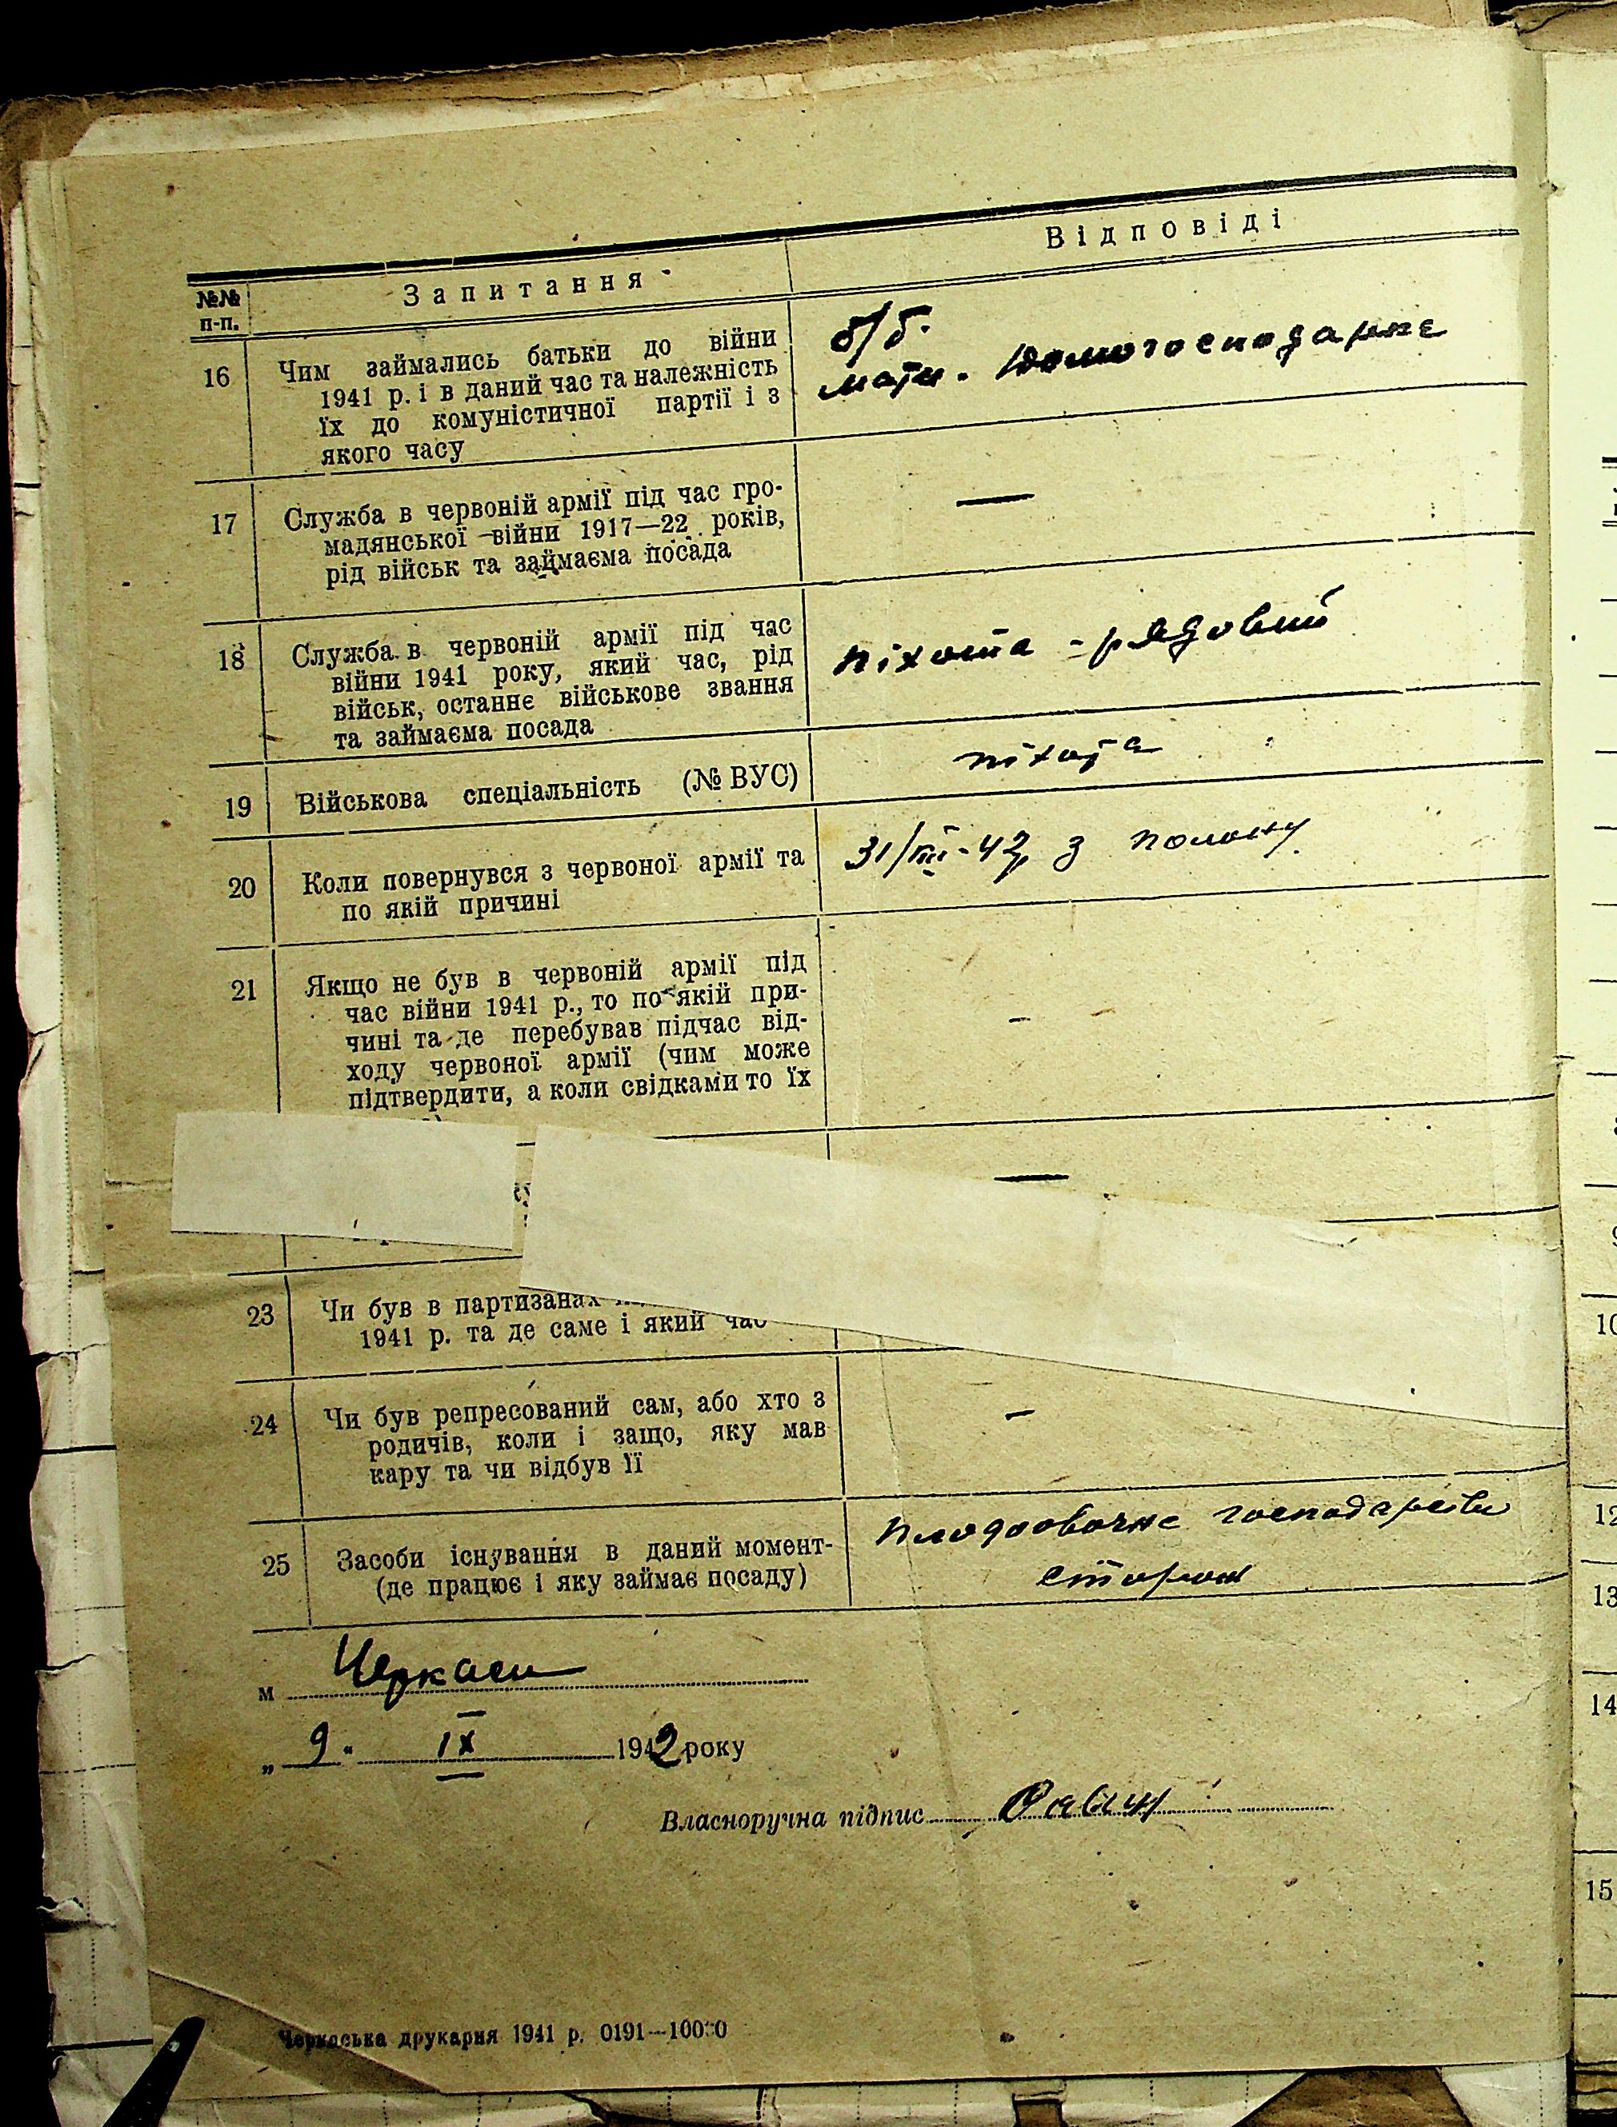 №№ п-п.
Запитання
Відповіді
16
Чим займались батьки до війни
1941 р. і в даний час та належність
їх до комуністичної партії і з
якого часу
б/б.
мати. домогосподарка
17
Служба в червоній армії під час гро-
мадянської війни 1917—22 років,
рід військ та займаєма посада
—
18
Служба в червоній армії під час
війни 1941 року, який час, рід
військ, останнє військове звання
та займаєма посада
піхота - рядовий
19
Військова спеціальність (№ ВУС)
піхота
20
Коли повернувся з червоної армії та
по якій причині
31/III-42 з полону
21
Якщо не був в червоній армії під
час війни 1941 р., то по якій при-
чині та де перебував підчас від-
ходу червоної армії (чим може
підтвердити, а коли свідками то їх
–
—
23
Чи був в партизанах
1941 р. та де саме і який час
24
Чи був репресований сам, або хто з
родичів, коли і защо, яку мав
кару та чи відбув її
–
25
Засоби існування в даний момент-
(де працює і яку займає посаду)
Плодоовочне господарство
сторож
м Черкаси
„ 9 " IX 1942 року
Власноручна підпис
Черкаська друкарня 1941 р. 0191—10000